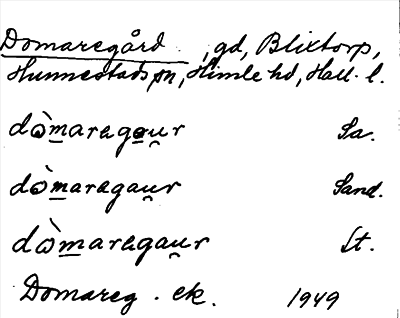 Domaregård, gd, Blixtorp,
Hunnestads sn, Himle hd, Hall. l.
dὼmaragau̯r Sa.
dὼmaragau̯r Sand.
dὼmaragau̯r St.
Domareg. ek. 1949